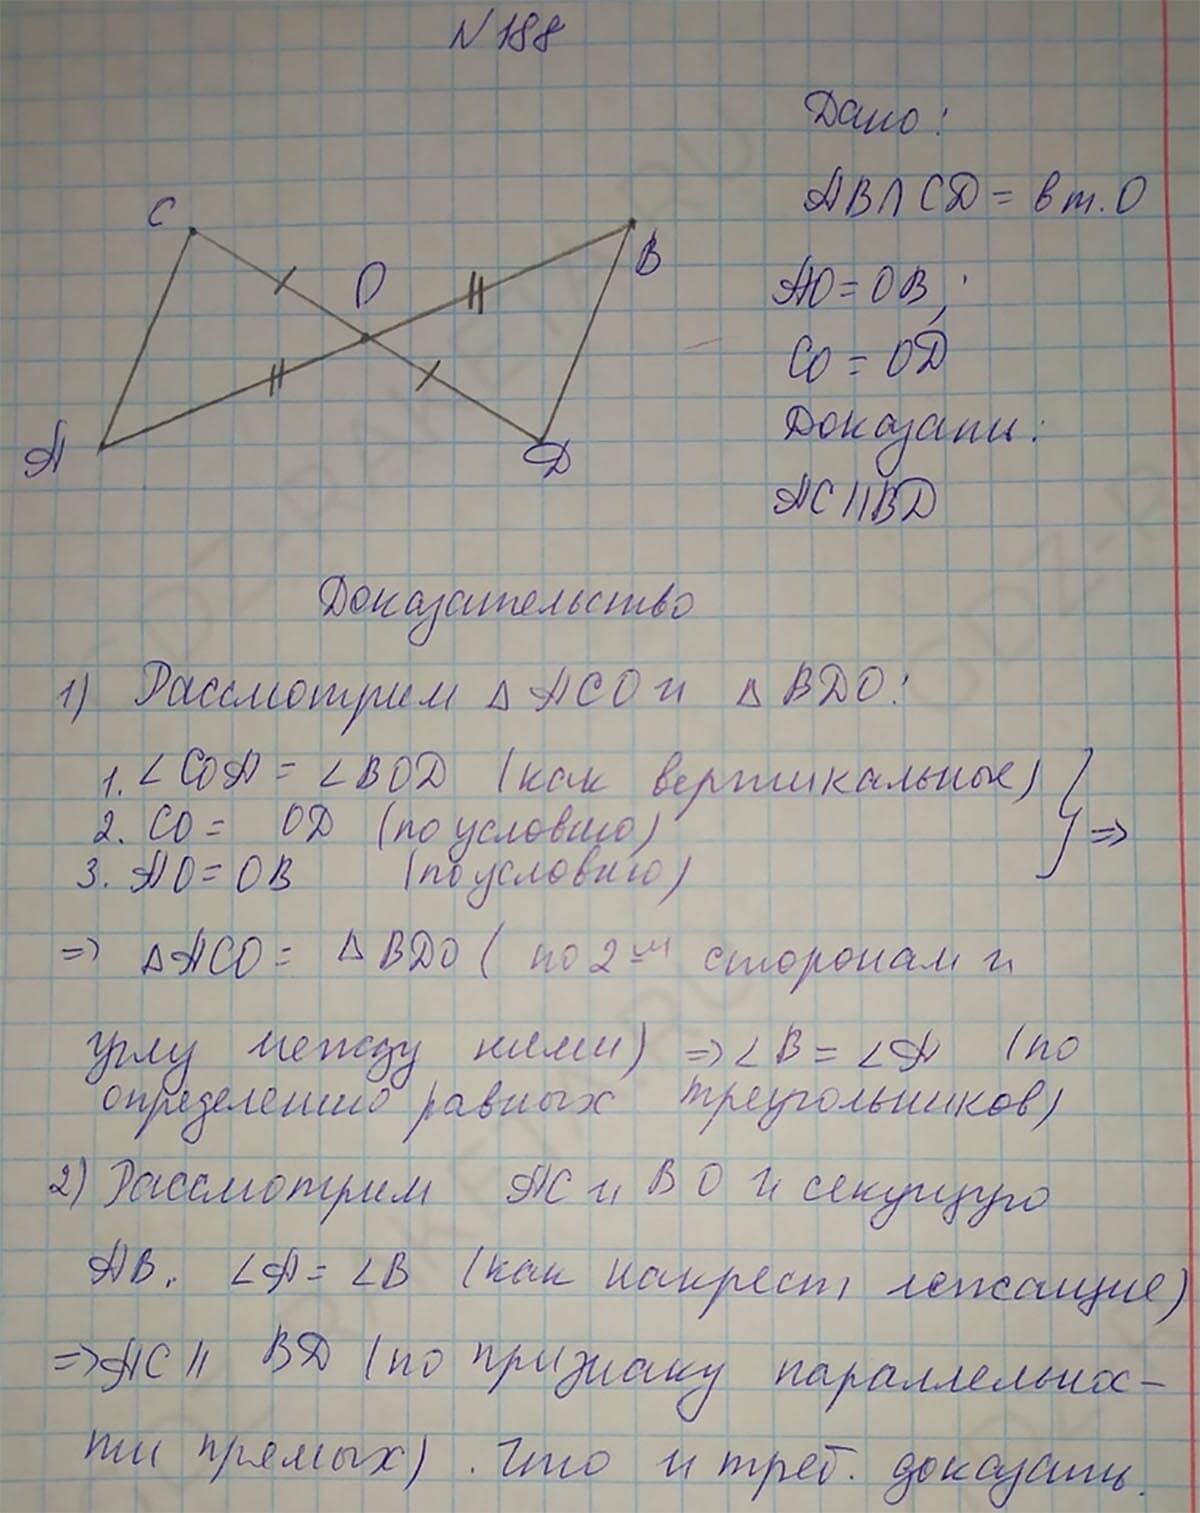 N 188
Дано:
AB∩CD = в т. O
AO = OB;
CO = OD
Доказать:
AC || BD
C
O
B
A
D
Доказательство
1) Рассмотрим △ ACO и △ BDO:
1. ∠COA = ∠BOD (как вертикальные)
2. CO = OD (по условию)
3. AO = OB (по условию)
=>
=> △ACO = △BDO (по 2-м сторонам и
углу между ними) => ∠B = ∠A (по
определению равных треугольников)
2) Рассмотрим AC и BO и секущую
AB. ∠A = ∠B (как накрест лежащие)
=> AC || BD (по признаку параллельнос-
ти прямых). Что и треб. доказать.